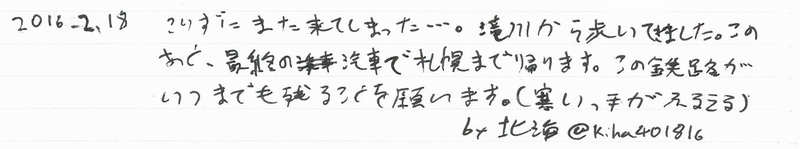 2016.2.18 こりずにまた来てしまった…。滝川から歩いてきました。この
あと、最終の汽車で札幌まで帰ります。この鉄路が
いつまでも残ることを願います。(寒いっ手がふるえる)
by 北海 @kiha401816